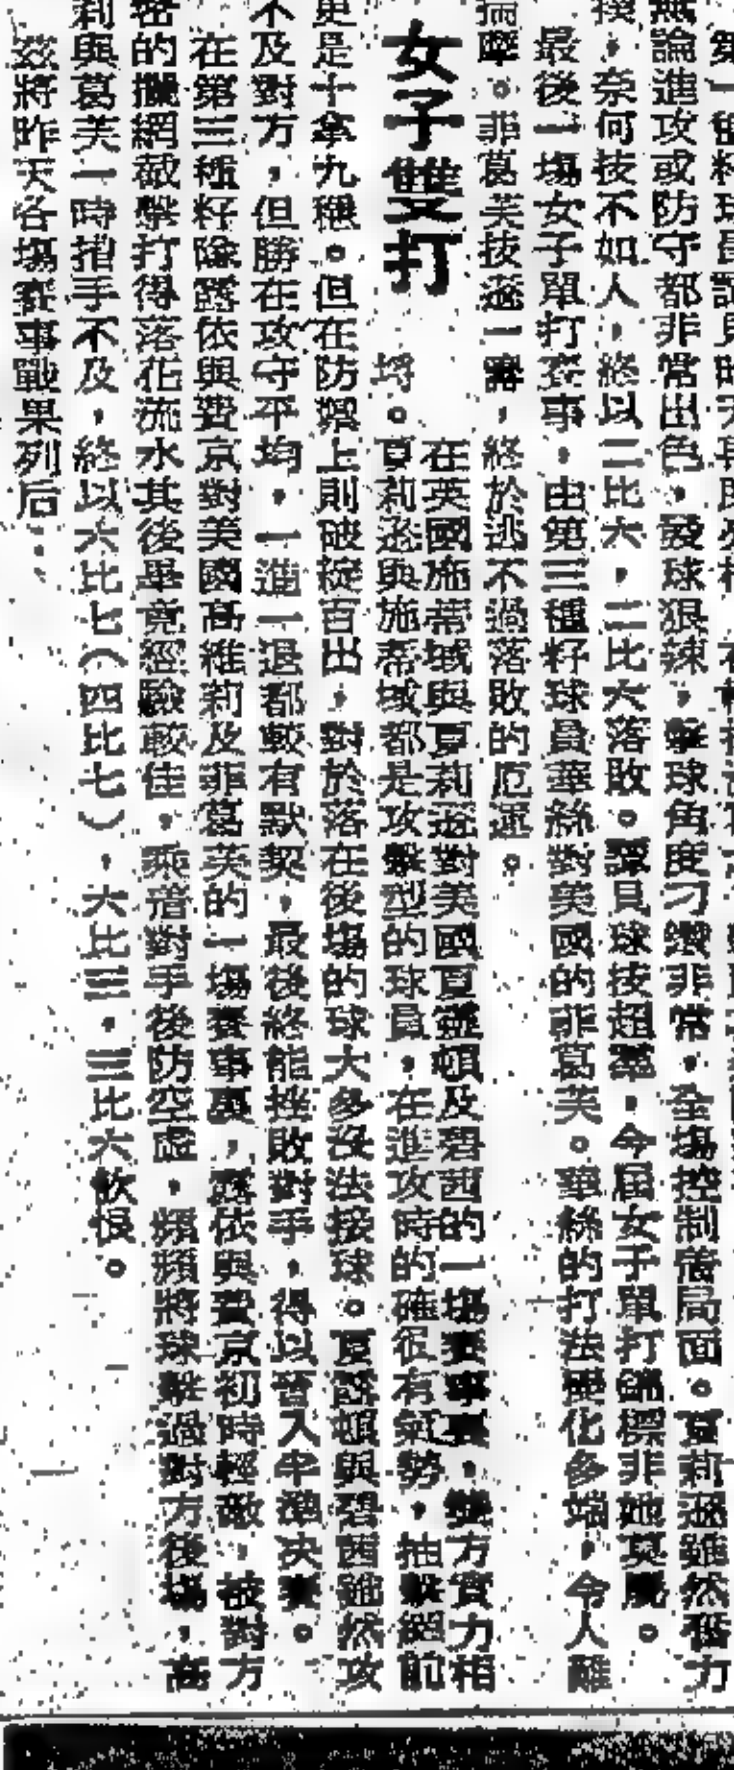 無論進攻或防守都非常出色,發球狠辣,擊球角度刁鑽非常,全場控制着局面。夏莉遜雖然奮力
,奈何技不如人,終以二比六,二比六落敗。譚貝球技超羣,今屆女子單打錦標非她莫屬。
最後一塲女子單打賽事,由第三種籽球員華絲對美國的菲葛芙。華絲的打法變化多端,令人難
揣摩。菲葛芙技遜一籌,終於逃不過落敗的厄運。
女子雙打
在英國施蒂域與夏莉遜對美國夏 頓及碧茜的一塲賽事裏,雙方實力相
埒。夏莉遜與施蒂域都是攻擊型的球員,在進攻時的確很有氣勢,抽擊網前
更是十拿九穩。但在防禦上則破綻百出,對於落在後塲的球大多沒法接球。夏 頓與碧茜雖然攻
不及對方,但勝在攻守平均,一進一退都較有默契,最後終能挫敗對手,得以晉入半準决賽。
在第三種籽 露依與費京對美國高維莉及菲葛芙的一塲賽事裏,露依與費京初時輕敵,被對方
密的攔網敲擊打得落花流水其後畢竟經驗較佳,乘着對手後防空虛,頻頻將球擊過對方後塲,高
莉與葛美一時措手不及,終以六比七(四比七),六比三,三比六飲恨。
茲將昨天各塲賽事戰果列后: